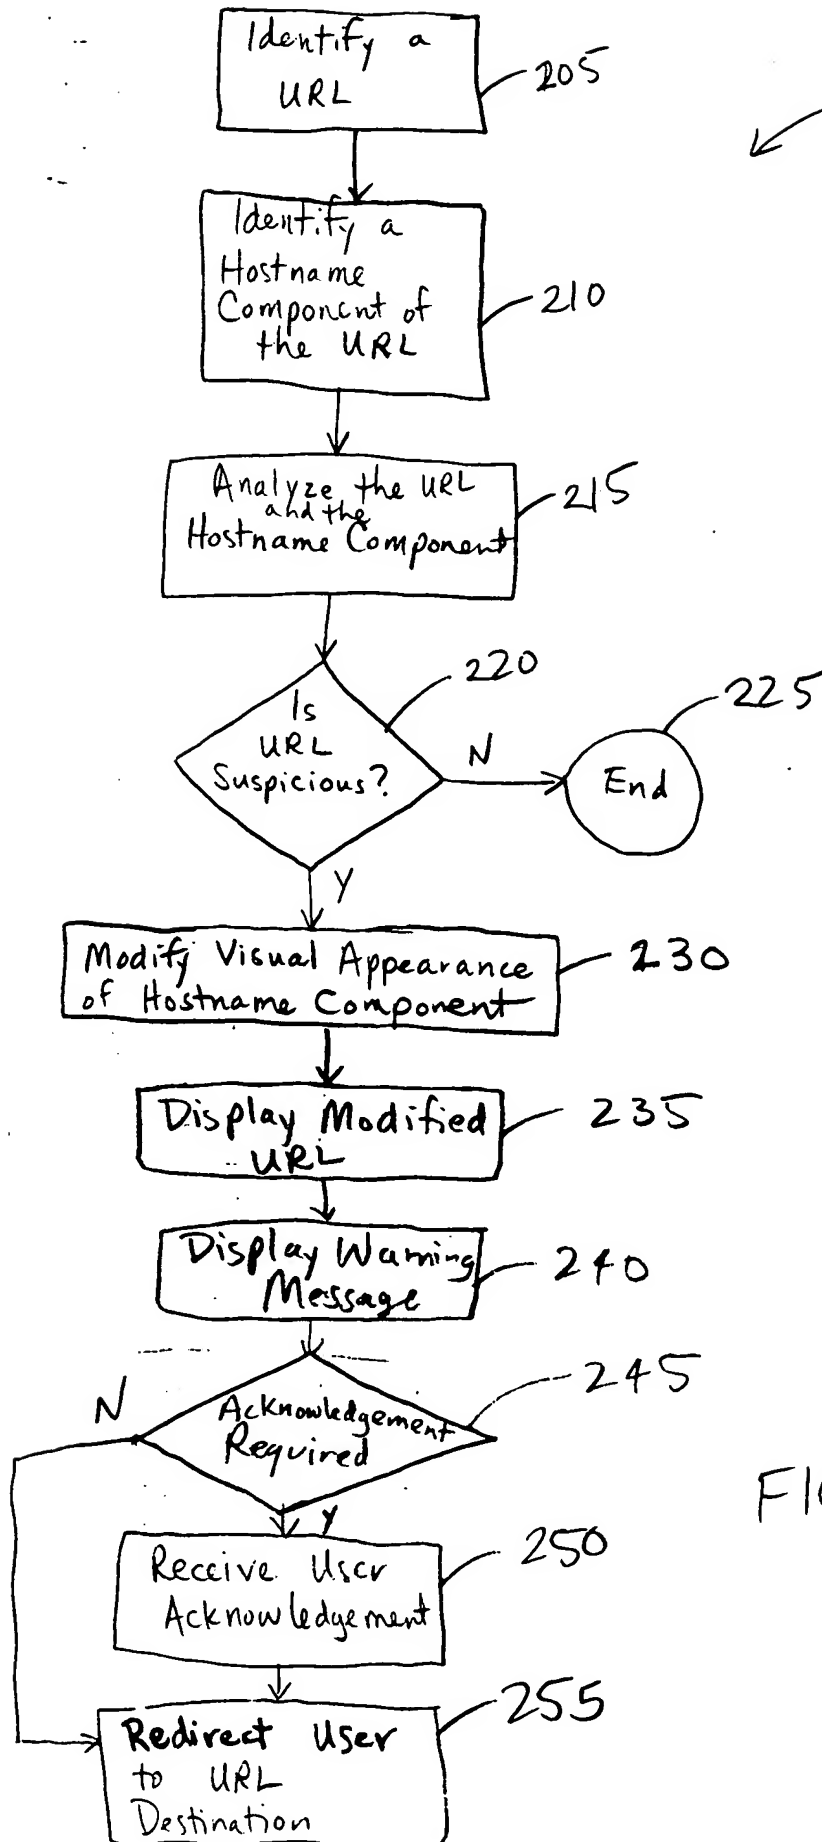 Identify a
URL
205
Identify a
Hostname
Component of
the URL
210
Analyze the URL
and the
Hostname Component
215
220
Is
URL
Suspicious?
N
225
End
Y
Modify Visual Appearance
of Hostname Component
230
Display Modified
URL
235
Display Warning
Message
240
245
N
Acknowledgement
Required
Y
FIG
Receive User
Acknowledgement
250
Redirect User
to URL
Destination
255